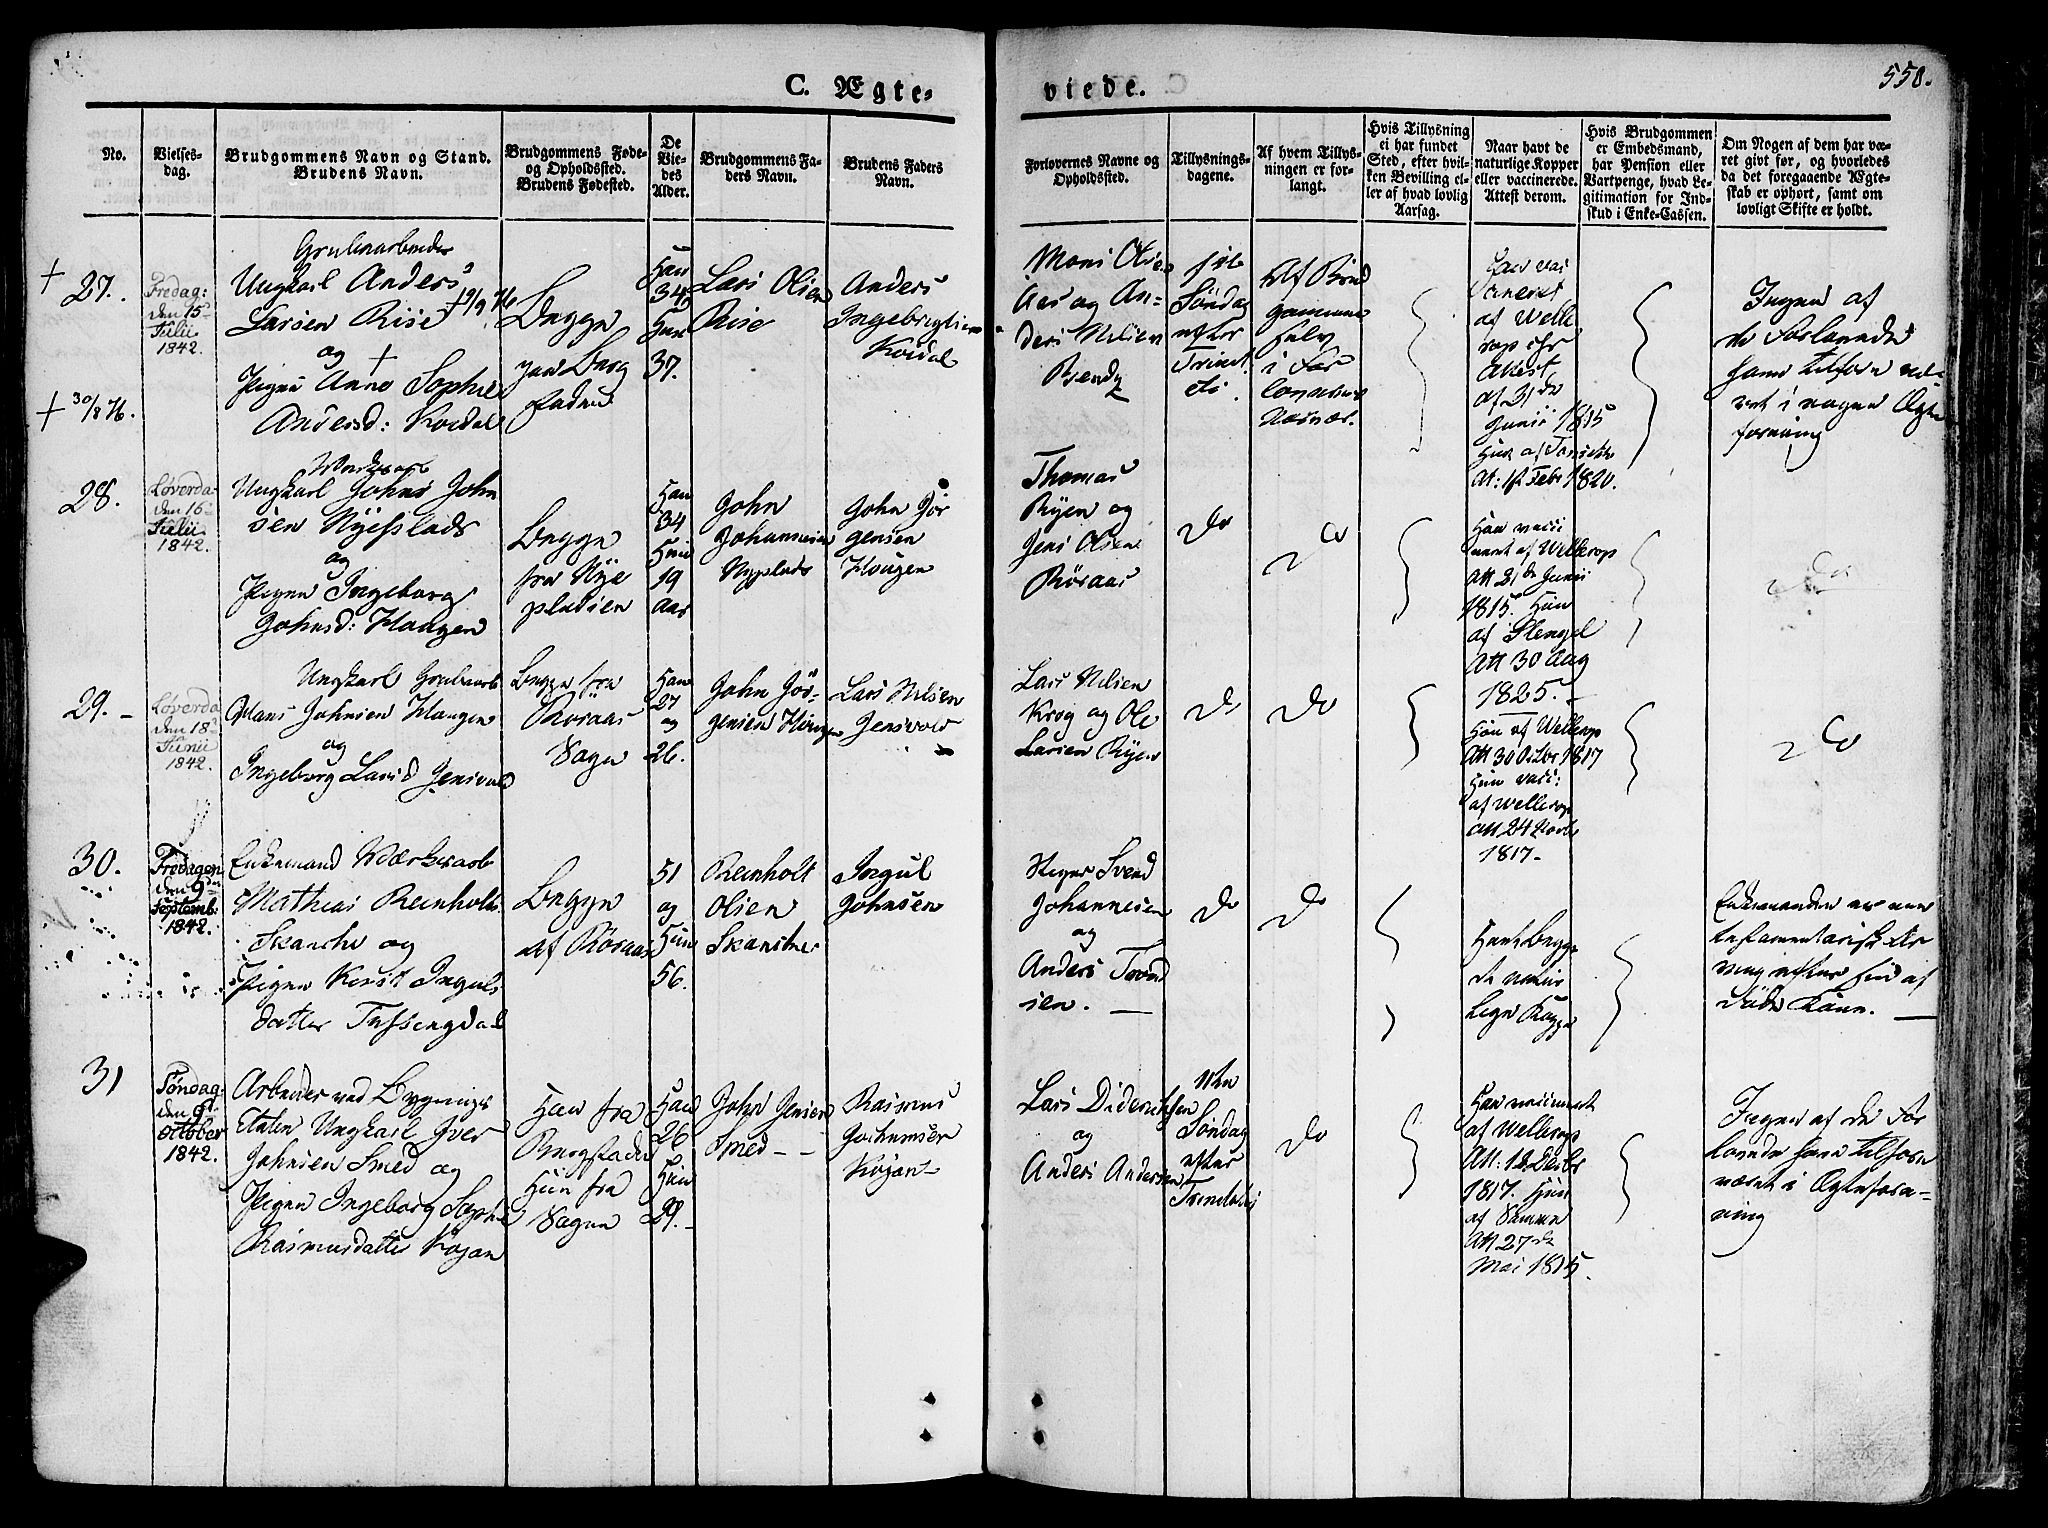 C. Ægte-
viede.
550.
No.
Vielses-
dag.
Brudgommens Navn og Stand.
Brudens Navn.
Brudgommens Føde-
og Opholdssted.
Brudens Fødested.
De
Vie-
des
Alder.
Brudgommens Fa-
ders Navn.
Brudens Faders
Navn.
Forlovernes Navne og
Opholdssted.
Tillysnings-
dagene.
Af hvem Tillys-
ningen er for-
langt.
Hvis Tillysning
ei har fundet
Sted, efter hvil-
ken Bevilling el-
ler af hvad lovlig
Aarsag.
Naar havt de
naturlige Kopper
eller vaccinerede.
Attest derom.
Hvis Brudgommen
er Embedsmand,
har Pension eller
Vartpenge, hvad Le-
gitimation for Ind-
skud i Enke-Cassen.
Om Nogen af dem har væ-
ret givt før, og hvorledes
da det foregaaende Ægte-
skab er ophørt, samt om
lovligt Skifte er holdt.
† 27.
† 30/8 76.
Fredag:
den 15
Julii
1842.
Grubearbeider
Ungkarl Anders
Larsen Riise † 9/9 76
og †
Pigen Anne Sophie
Andersd: Kordal
Begge
paa Berg
staden
Han
34
Hun
37.
Lars Olsen
Riise
Anders
Ingebrigtsen
Kordal
Mons Olsen
Aas og An-
ders Nilsen
Brendy
Søndag
efter
Trinit
Af Brud
gommen
selv
i For
lovernes
Nærvær.
Han var
vaccineret
af Welle
rop efter
Attest
af 21de
Junii 1815
Hun af
At: 12 Febr 1820.
Ingen af
de Forlovede
have tilforn væ-
ret i nogen Ægte
forening
28.
Løverda
den 16
Julii
1842.
Ungkarl Johns John
sen Nyeplads
og
Pigen Ingeborg
Johnsd: Haugen
Begge
fra Nye
pladsen
Han
34
Hun
19
Aar
John
Johannesen
Nyplads
John Jør
gensen
Haugen
Thomas
Ryen og
Jens Olsen
Röraas
Do
Do
Han vacci
neret af Wellerop
Att 21de Junii
1815. Hun
af Stengel
Att 30 Aug
1825.
Do
29. -
Løverda
den 18
Junii
1842.
Ungkarl Grubearb
Hans Johnsen Haugen
og
Ingeborg Larsd Jensvold
Begge fra
Röraas
Sogn
Han
27
og
26.
John Jör-
gensen Haugen
Lars Nilsen
Jensvold
Lars Nilsen
Krog og Ole
Larsen Ryen
Do
Do
Han af Wellerop
Att 30 Octbr 1817
Hun vacc:
af Wellerop
Att 24 Novbr
1817-
Do
30.
Fredagen
den 9de
Septemb:
1842.
Enkemand Værksarb
Mathias Reinholt
Skancke og
Pigen Kirst Ingels
datter Tufsengdal
Begge
af Röraas
51
og
Hun
56.
Reinholt
Olsen
Skancke
Ingul
Johnsen
Svend
Johannesen
og
Anders Trond
sen. —
Do
Do
Havt begge
de natur
lige Kopper
Enkemanden er
testamentarisk Ar
ving efter sin af
døde Kone. —
31
Søndag
den 9de
October
1842.
Arbeider ved Bygnings
Etaten Ungkarl Iver
Johnsen Smed og
Pigen Ingeborg Sophie
Rasmusdatter Kojan
Han fra
Bergstaden
Hun fra
Sognen
Han
26
Hun
29.
John Jensen
Smed - -
Rasmus
Jochumsen
Kojan
Lars Dideriksen
og
Anders Andersen
Søndag
efter
Trinitatis
Do
Han vaccineret
af Wellerop
Att: 12 Decbr
1817. Hun
af Samme
Att 27de
Mai 1815.
Ingen af de For
lovede have tilforn
været i Ægtefore-
ning